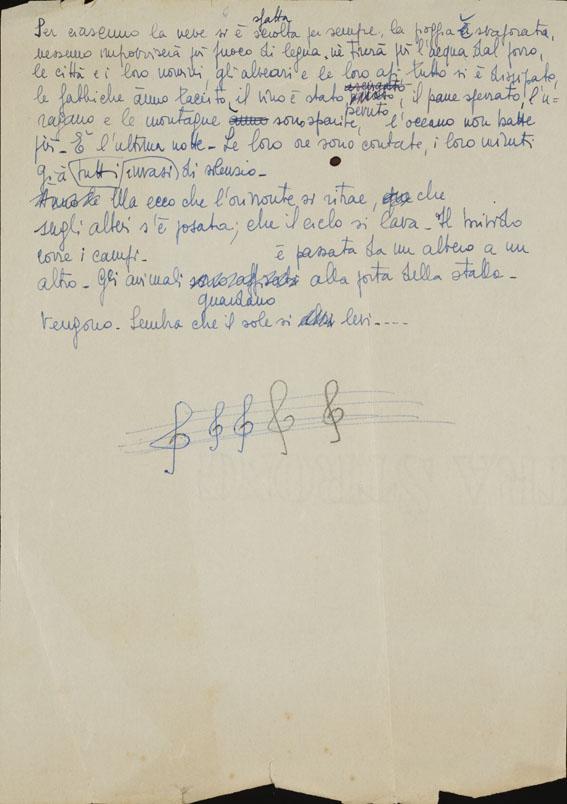 sfatta
Per ciascuno la neve si è sciolta per sempre, la pioggia è svaporata,
nessuno improvviserà più fuoco di legna, nè tirerà più l'acqua dal pozzo,
le città e i loro nomi, gli alveari e le loro api: tutto si è dissipato,
asciugato
le fabbriche ànno taciuto, il vino è stato, il pane spezzato, l'u=
bevuto
ragano e le montagne ànno sono sparite, l'oceano non batte
più - È l'ultima notte - Le loro ore sono contate, i loro minuti
già tutti invasi di silenzio -
Ma ecco che l'orizzonte si ritrae, che
sugli alberi s'è posata; che il cielo si lava - Il brivido
corre i campi - è passata da un albero a un
altro - Gli animali alla porta della stalla -
guardano
Vengono - Sembra che il sole si levi ----